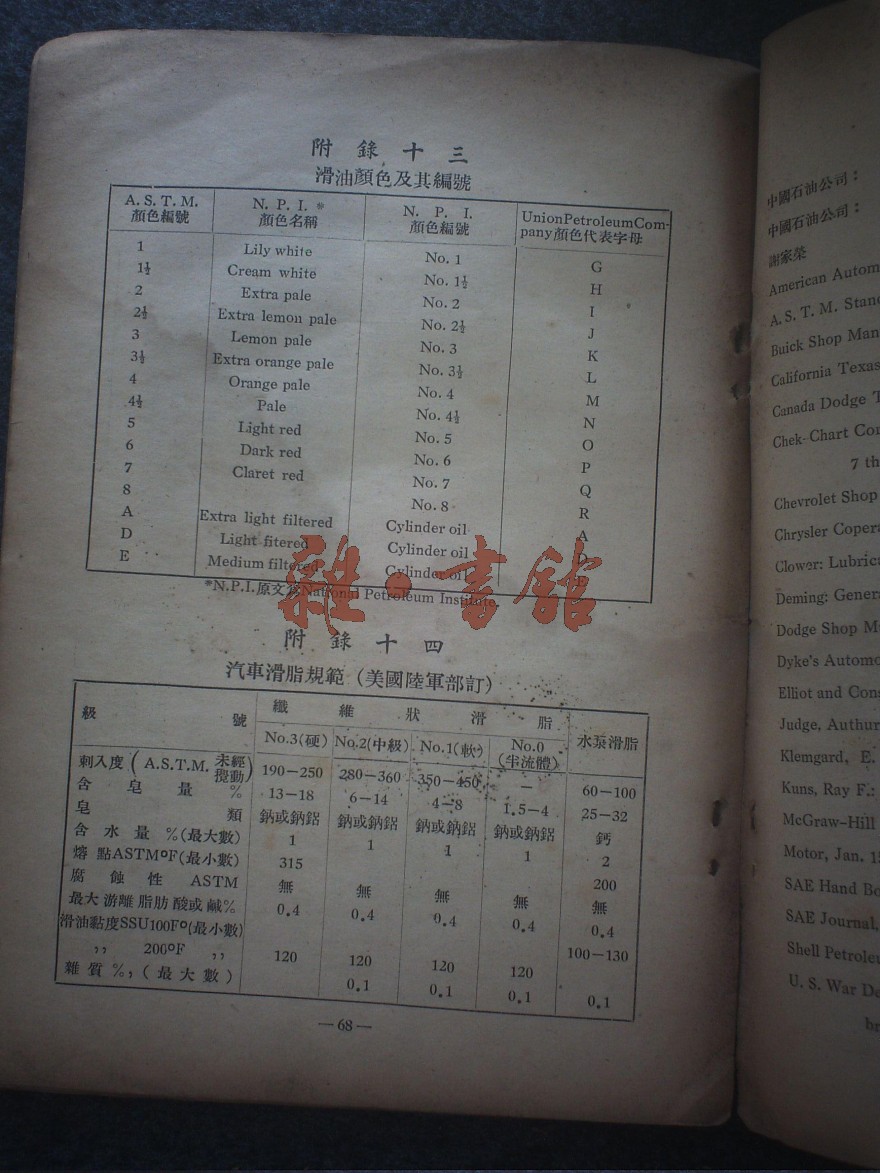 附錄十三
滑油顏色及其編號
A. S. T. M. 顏色編號 N. P. I. * 顏色名稱 N. P. I. 顏色編號 Union Petroleum Company 顏色代表字母
1 Lily white No. 1 G
1½ Cream white No. 1½ H
2 Extra pale No. 2 I
2½ Extra lemon pale No. 2½ J
3 Lemon pale No. 3 K
3½ Extra orange pale No. 3½ L
4 Orange pale No. 4 M
4½ Pale No. 4½ N
5 Light red No. 5 O
6 Dark red No. 6 P
7 Claret red No. 7 Q
8 No. 8 R
A Extra light filtered Cylinder oil A
D Light fitered Cylinder oil D
E Medium filtered Cylinder oil E
*N.P.I.原文爲National Petroleum Institute.
雜·書館
附錄十四
汽車滑脂規範(美國陸軍部訂)
級號 纖維狀滑脂 水泵滑脂
No.3(硬) No.2(中級) No.1(軟) No.0(半流體)
刺入度(A.S.T.M.未經攪動) 190—250 280—360 350—450 — 60—100
含皂量% 13—18 6—14 4—8 1.5—4 25—32
皂類 鈉或鈉鋁 鈉或鈉鋁 鈉或鈉鋁 鈉或鈉鋁 鈣
含水量%(最大數) 1 1 1 1 2
熔點ASTM°F(最小數) 315 200
腐蝕性 ASTM 無 無 無 無 無
最大游離脂肪酸或鹹% 0.4 0.4 0.4 0.4 0.4
滑油黏度SSU100F°(最小數) 100—130
,, 200°F ,, 120 120 120 120
雜質%,(最大數) 0.1 0.1 0.1 0.1
—68—
中國石油公司:
中國石油公司:
謝家榮
American Autom
A. S. T. M. Stand
Buick Shop Man
California Texas
Canada Dodge T
Chek-Chart Cor
7 th
Chevrolet Shop
Chrysler Copera
Clower: Lubrica
Deming: Genera
Dodge Shop M
Dyke's Automo
Elliot and Cons
Judge, Authur
Klemgard, E.
Kuns, Ray F.:
McGraw-Hill
Motor, Jan. 15
SAE Hand Bo
SAE Journal,
Shell Petroleu
U. S. War De
br